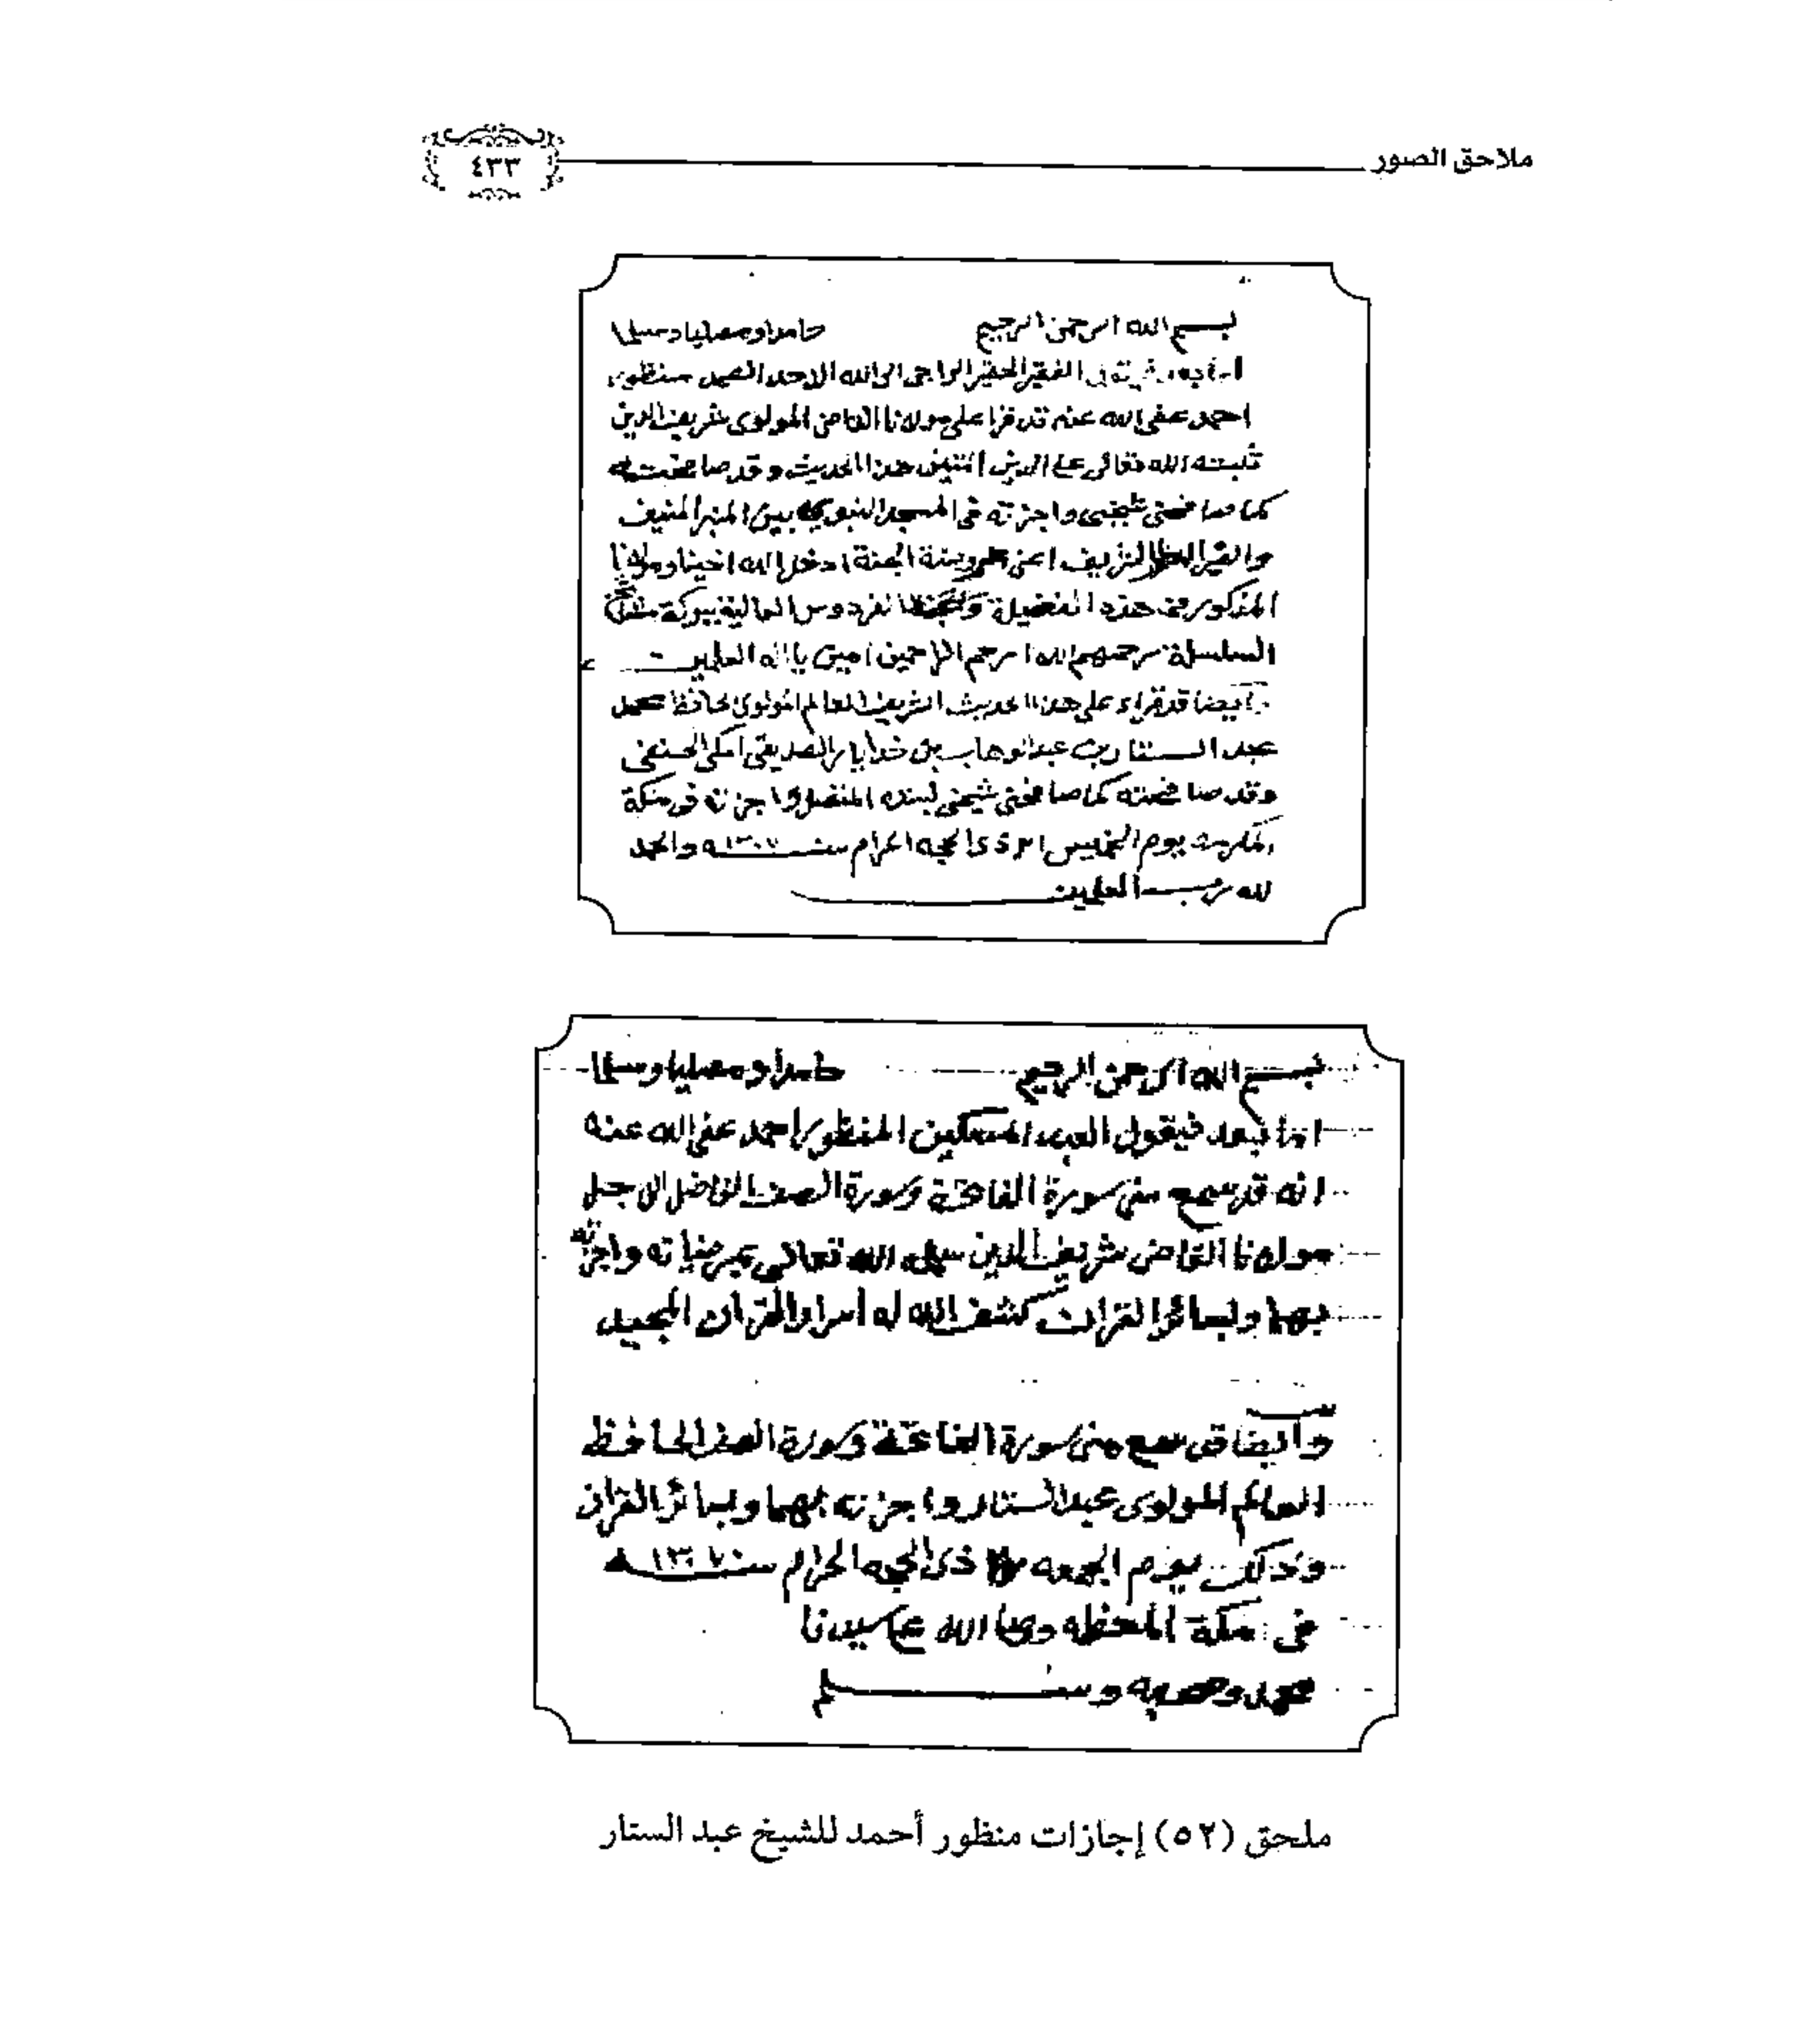 ملاحق الصور
٤٣٣
بسم الله الرحمن الرحيم حامدا ومصليا ومسلما
اما بعد فيقول الفقير الحقير الراجي الى الله الاحد الصمد منظور
احمد عفى الله عنه قد قرا على مولانا القاضى المولوى شريف الدين
ثبته الله تعالى على الدين المتين هذا الحديث وقد صافحت له
كما صافحنى شيخى واجزته فى المسجد النبوى بين المنبر المنيف
والقبر الشريف اعنى روضة الجنة ادخل الله اخينا ومولانا
المذكور فى هذه الفضيلة الفردوس العالية ببركة مشائخ
السلسلة رحمهم الله ارحم الراحمين امين يا اله العلمين
وايضا قد قراء على هذا الحديث الشريف العالم المولوى الحافظ محمد
عبد الستار بن عبد الوهاب بن خدايار الصديقى المكى الحنفى
وقد صافحته كما صافحنى شيخى بسنده المتصل واجزته فى مكة
المكرمه يوم الخميس ذى الحجه الحرام سنه ١٣٠٧ه والحمد
لله رب العلمين
بسم الله الرحمن الرحيم حامدا ومصليا ومسلما
اما بعد فيقول العبد المسكين المنظور احمد عفى الله عنه
انه قد سمع منى سورة الفاتحة وسورة الصف الفاضل الاجل
مولانا القاضى شريف الدين سلمه الله تعالى بمرضياته واجزته
بهما وبسائر القران كشف الله له أسرار القران المجيد
وأيضا قد سمع منى سورة الفاتحة وسورة الصف الحافظ
العالم المولوى عبد الستار واجزته بهما وبسائر القران
وذلك يوم الجمعه ذى الحجه الحرام سنه ١٣٠٧ه
فى مكة المعظمه وصلى الله على سيدنا
محمد وصحبه وسلم
ملحق (٥٢) إجازات منظور أحمد للشيخ عبد الستار